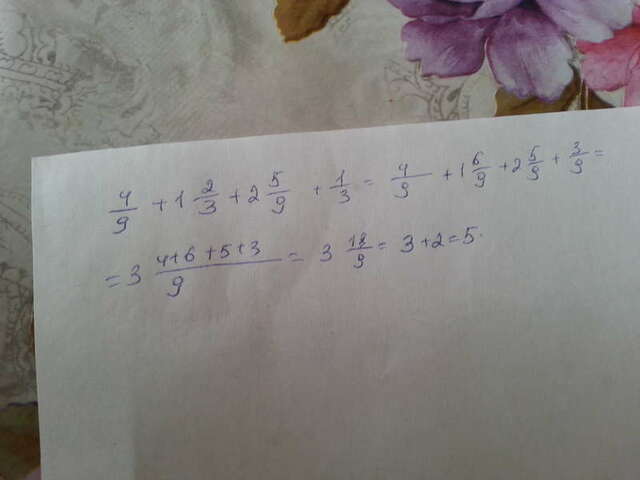 4/9 + 1 2/3 + 2 5/9 + 1/3 = 4/9 + 1 6/9 + 2 5/9 + 3/9 =
= 3 (4+6+5+3)/9 = 3 18/9 = 3+2=5.